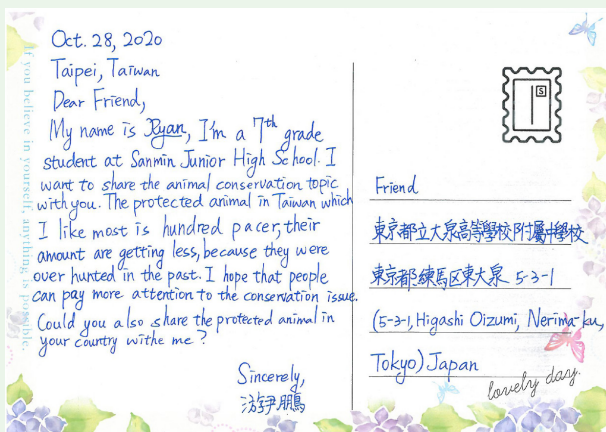 Oct. 28, 2020
Taipei, Taiwan
Dear Friend,
My name is Ryan, I'm a 7th grade
student at Sanmin Junior High School. I
want to share the animal conservation topic
with you. The protected animal in Taiwan which
I like most is hundred pacer, their
amount are getting less, because they were
over hunted in the past. I hope that people
can pay more attention to the conservation issue.
Could you also share the protected animal in
your country withe me?
Sincerely,
游尹鵬
If you believe in yourself, anything is possible.
S
Friend
東京都立大泉高等學校附屬中學校
東京都練馬区東大泉 5-3-1
(5-3-1, Higashi Oizumi, Nerima-ku,
Tokyo) Japan
lovely day.